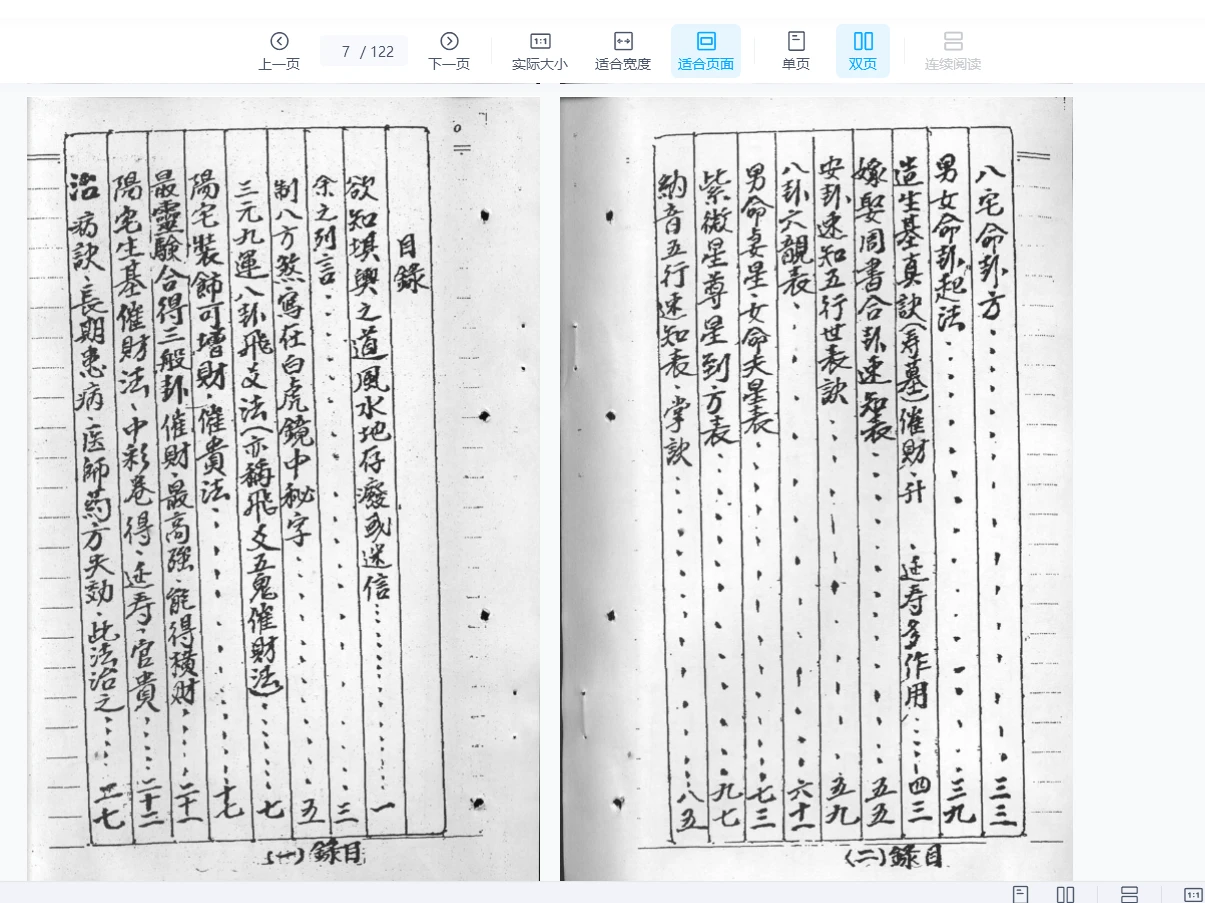 上一页
7 / 122
下一页
1:1
实际大小
适合宽度
适合页面
单页
双页
连续阅读
目錄
欲知堪輿之道風水地仔癈或迷信⋯⋯一
余之列言⋯⋯三
制八方煞寫在白虎鏡中秘字⋯⋯五
三元九運八卦飛爻法(亦稱飛爻五鬼催財法)⋯⋯七
陽宅裝飾可增財·催貴法⋯⋯十七
最靈驗合得三般卦催財·最高強·能得橫財⋯⋯二十一
陽宅生基催財法·中彩卷得·延寿·官貴⋯⋯二十二
治病訣·長期患病·医師药方失効·此法治之⋯⋯二七
目錄(一)
八宅命卦方⋯⋯三三
男女命卦起法⋯⋯三九
造生基真訣(寿墓)催財·升 ·延寿多作用⋯⋯四三
嫁娶周書合卦速知表⋯⋯五五
安卦速知五行世表訣⋯⋯五九
八卦六親表⋯⋯六十一
男命妻星·女命夫星表⋯⋯七三
紫微星尊星到方表⋯⋯九七
納音五行速知表·掌訣⋯⋯八五
目錄(二)
1:1